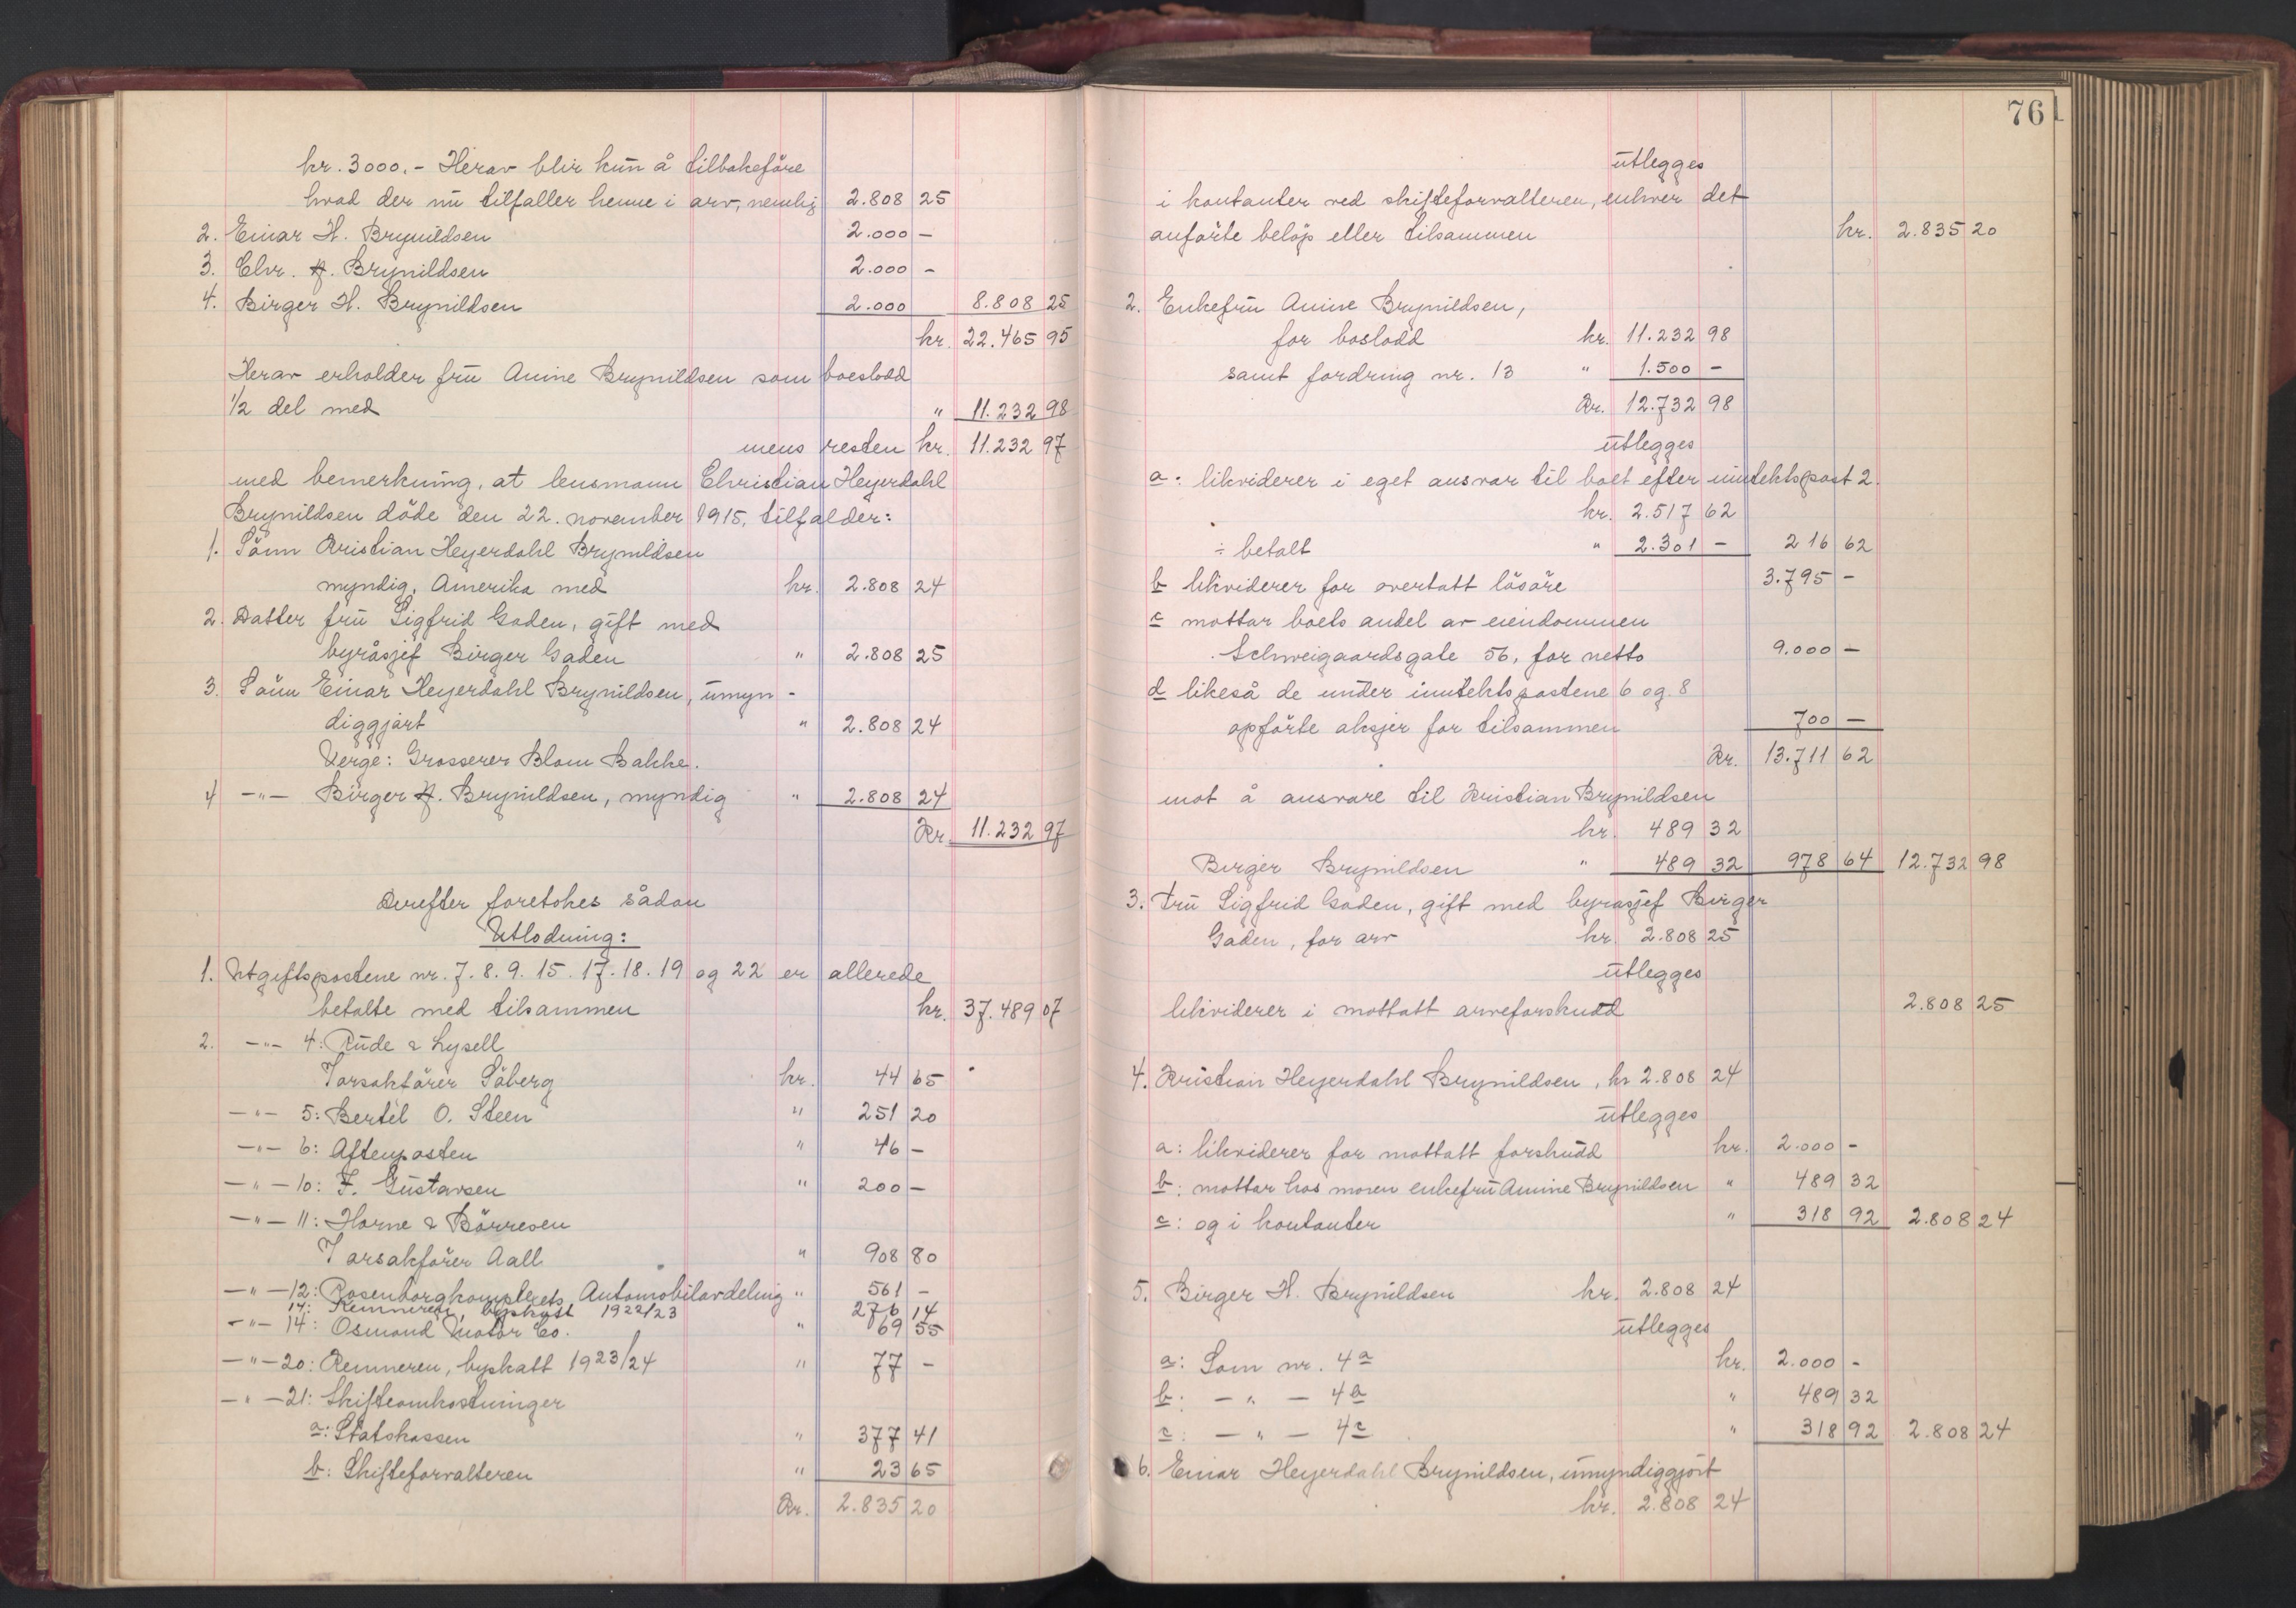 kr. 3000.- Herav blir kun å tilbakeföre
hvad der nu tilfaller henne i arv, nemlig 2.808 25
2. Einar H. Brynildsen 2.000 -
3. Chr. H. Brynildsen 2.000 -
4. Birger H. Brynildsen 2.000 8.808 25
kr. 22.465 95
Herav erholder fru Anine Brynildsen som boeslodd
1/2 del med " 11.232 98
mens resten kr. 11.232 97
med bemerkning, at lensmann Christian Heyerdahl
Brynildsen döde den 22. november 1915, tilfalder:
1. Sönn Kristian Heyerdahl Brynildsen
myndig, Amerika med kr. 2.808 24
2. Datter fru Sigfrid Gaden, gift med
byråsjef Birger Gaden " 2.808 25
3. Sönn Einar Heyerdahl Brynildsen, umyn-
diggjört " 2.808 24
Verge: Grosserer Blom Bakke.
4 -"- Birger H. Brynildsen, myndig " 2.808 24
Kr. 11.232 97
Derefter foretokes sådan
Utlodning:
1. Utgiftspostene nr. 7. 8. 9. 15. 17. 18. 19 og 22 er allerede
betalte med tilsammen kr. 37.489 07
2. -"- 4: Rude & Lysell
Torsaktörer Söberg kr. 44 65
-"- 5: Bertel O. Steen " 251 20
-"- 6: Aftenposten " 46 -
-"- 10: F. Gustavsen " 200 -
-"- 11: Horne & Börresen
Torsakförer Aall " 908 80
-"- 12: Rosenborgkompleksts Automobilavdeling " 561 -
14: Kemneren, byskatt 1922/23 276 14
-"- 14: Osmond Motor Co. " 69 55
-"- 20: Kemneren, byskatt 1923/24 " 77 -
-"- 21: Skifteomkostninger
a: Statskassen " 377 41
b: Skifteforvalteren " 23 65
Kr. 2.835 20
761
utlegges
i kontanter ved skifteforvalteren, enhver det
anförte belöp eller tilsammen kr. 2.835 20
2. Enkefru Anine Brynildsen,
for boslodd kr. 11.232 98
samt fordring nr. 13 " 1.500 -
Kr. 12.732 98
utlegges
a: likviderer i eget ansvar til boet efter inntektspost 2.
kr. 2.517 62
÷ betalt " 2.301 - 216 62
b likviderer for overtatt lösöre 3.795 -
c mottar boets andel av eiendommen
Schweigaardsgate 56, for netto 9.000 -
d likeså de under inntektspostene 6 og 8
opförte aksjer for tilsammen 700 -
Kr. 13.711 62
mot å ansvare til Kristian Brynildsen
kr. 489 32
Birger Brynildsen " 489 32 978 64 12.732 98
3. Fru Sigfrid Gaden, gift med byråsjef Birger
Gaden, for arv kr. 2.808 25
utlegges
likviderer i mottatt arveforskudd 2.808 25
4. Kristian Heyerdahl Brynildsen, kr 2.808 24
utlegges
a: likviderer for mottatt forskudd kr. 2.000 -
b: mottar hos moren enkefru Anine Brynildsen " 489 32
c: og i kontanter " 318 92 2.808 24
5. Birger H. Brynildsen kr. 2.808 24
utlegges
a: Som nr. 4a kr. 2.000 -
b: - " - 4b " 489 32
c: - " - 4c " 318 92 2.808 24
6. Einar Heyerdahl Brynildsen, umyndiggjört
kr. 2.808 24